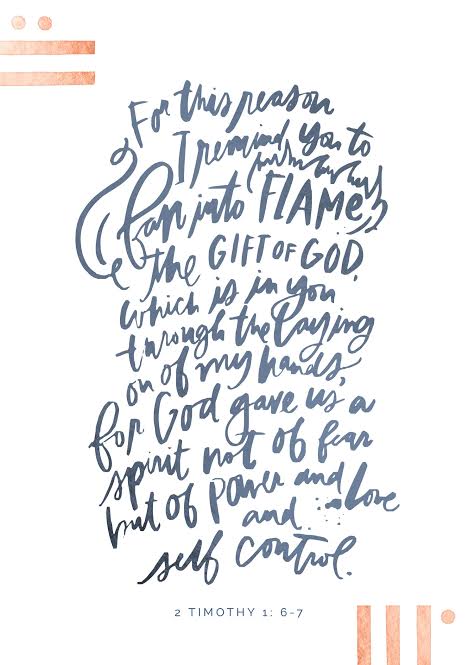 For this reason
I remind you to
fan into FLAME,
the GIFT OF GOD,
which is in you
through the laying
on of my hands,
for God gave us a
spirit not of fear
but of power and love
and
self control.
2 TIMOTHY 1: 6-7